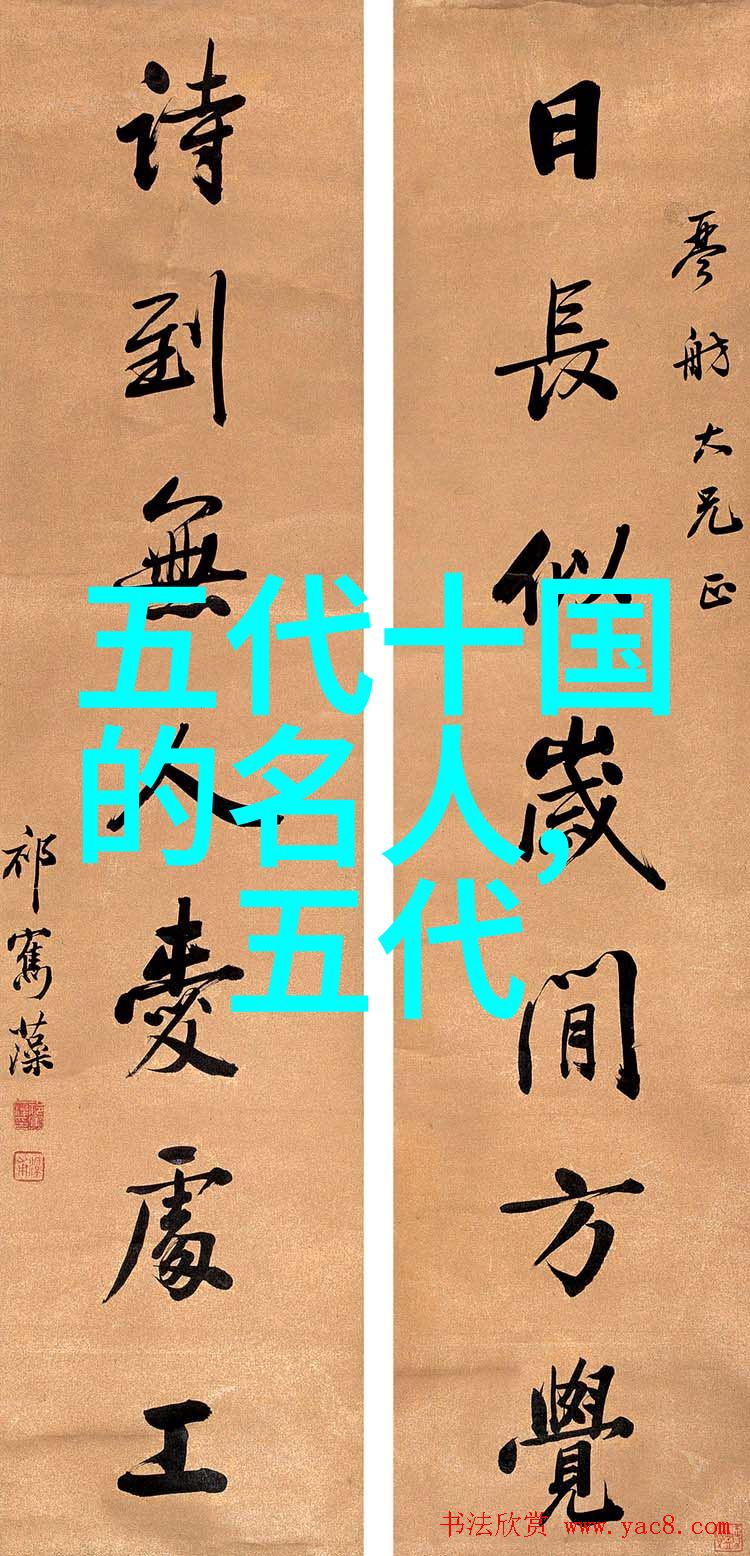 日長似歲閒方覺
琴舫大兄正
詩到無人愛處工
祁寯藻
五代十国
的名人,
五代
书法欣赏 www.yac8.com